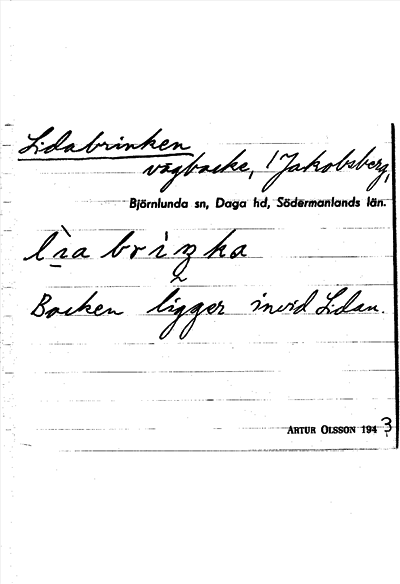 Lidabrinken
vägbacke, / Jakobsberg,
Björnlunda sn, Daga hd, Södermanlands län.
Backen ligger invid Lidan.
ARTUR OLSSON 1943